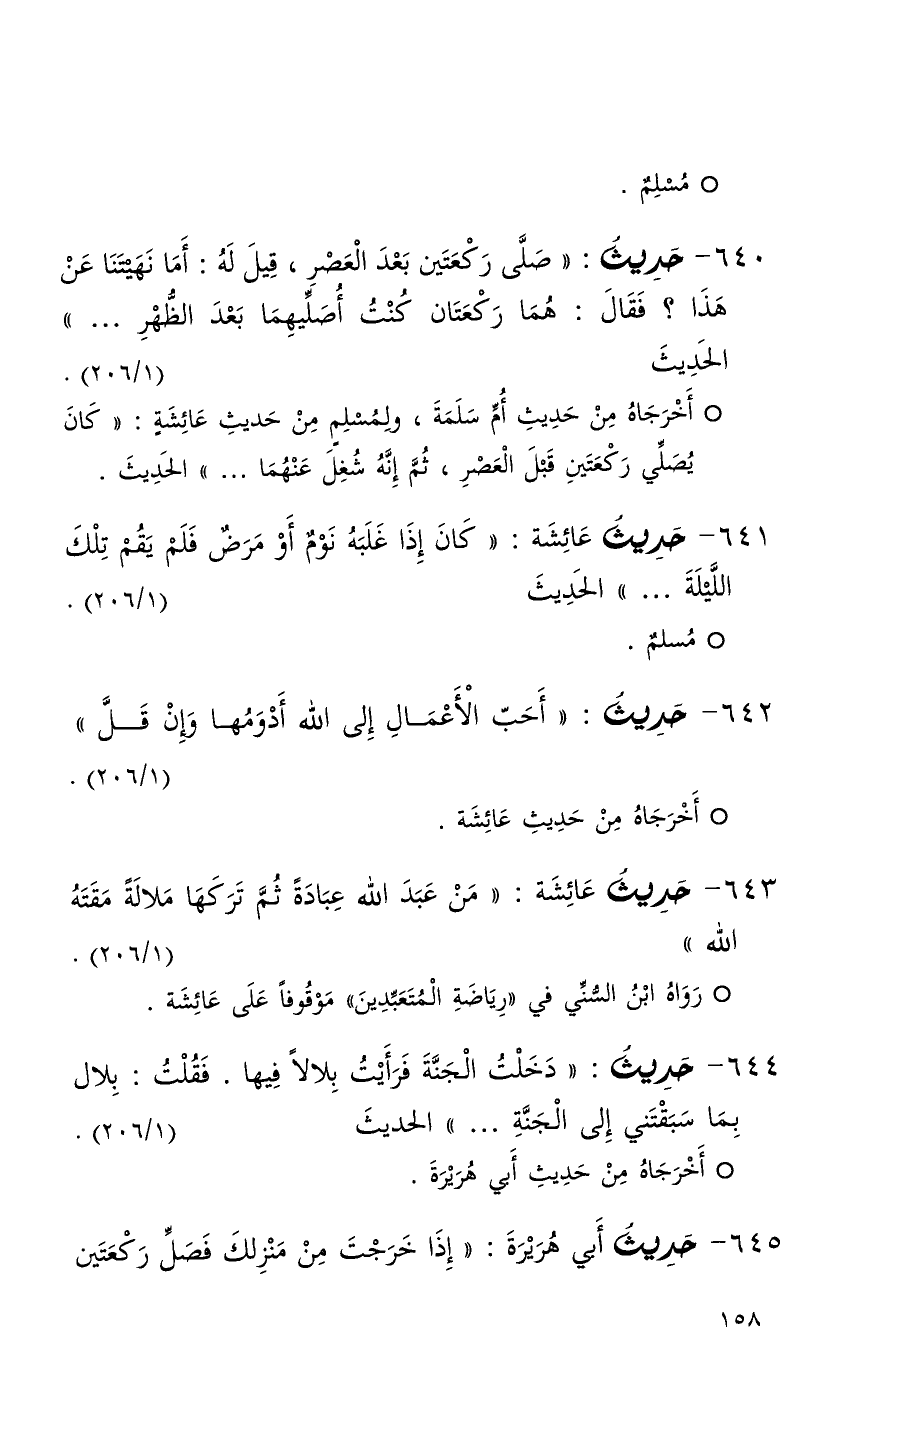 ○ مُسْلِمٌ .
٦٤٠- حَدِيثُ : « صَلَّى رَكْعَتَين بَعْدَ الْعَصْرِ ، قِيلَ لَهُ : أَمَا نَهَيْتَنَا عَنْ
هَذَا ؟ فَقَالَ : هُمَا رَكْعَتَان كُنْتُ أُصَلِّيهِمَا بَعْدَ الظُّهْرِ ... »
الحَدِيثَ (٢٠٦/١) .
○ أَخْرَجَاهُ مِنْ حَدِيثِ أُمِّ سَلَمَةَ ، ولِمُسْلِمٍ مِنْ حَديثِ عَائِشَةٍ : « كَانَ
يُصَلِّي رَكْعَتَينِ قَبْلَ الْعَصْرِ ، ثُمَّ إِنَّهُ شُغِلَ عَنْهُمَا ... » الحَدِيثَ .
٦٤١- حَدِيثُ عَائِشَة : « كَانَ إِذَا غَلَبَهُ نَوْمٌ أَوْ مَرَضٌ فَلَمْ يَقُمْ تِلْكَ
اللَّيْلَةَ ... » الحَدِيثَ (٢٠٦/١) .
○ مُسلمٌ .
٦٤٢- حَدِيثُ : « أَحَبّ الْأَعْمَـالِ إِلى الله أَدْوَمُهـا وَإِنْ قَـلَّ »
(٢٠٦/١) .
○ أَخْرَجَاهُ مِنْ حَدِيثِ عَائِشَة .
٦٤٣- حَدِيثُ عَائِشَة : « مَنْ عَبَدَ الله عِبَادَةً ثُمَّ تَرَكَهَا مَلالَةً مَقَتَهُ
الله » (٢٠٦/١) .
○ رَوَاهُ ابْنُ السُّنِّي في «رِيَاضَةِ الْمُتَعَبِّدِينَ» مَوْقُوفاً عَلَى عَائِشَة .
٦٤٤- حَدِيثُ : « دَخَلْتُ الْجَنَّةَ فَرَأَيْتُ بِلالاً فِيها . فَقُلْتُ : بِلال
بِمَا سَبَقْتَني إِلى الْجَنَّةِ ... » الحديثَ (٢٠٦/١) .
○ أَخْرَجَاهُ مِنْ حَدِيثِ أَبي هُرَيْرَةَ .
٦٤٥- حَدِيثُ أَبي هُرَيْرَةَ : « إِذَا خَرَجْتَ مِنْ مَنْزِلكَ فَصَلِّ رَكْعَتَين
١٥٨